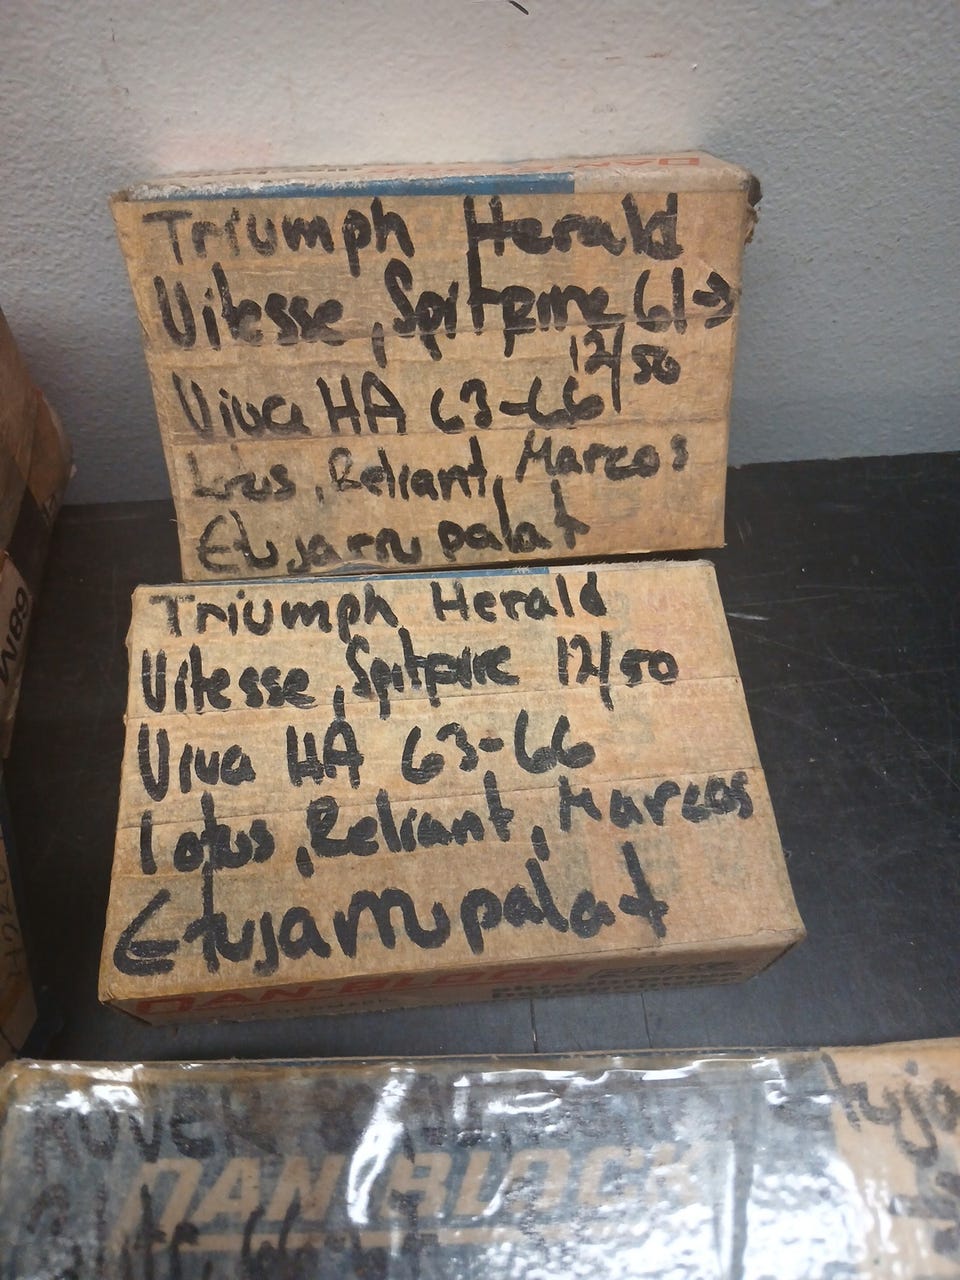 DAN-
Triumph Herald
Vitesse, Spitfire 61→
12/50
Viva HA 63-66
Lotus, Reliant, Marcos
Etujarru palat
Triumph Herald
Vitesse, Spitfire 12/50
Viva HA 63-66
Lotus, Reliant, Marcos
Etujarru palat
DAN-BLOCK
ROVER
DAN-BLOCK